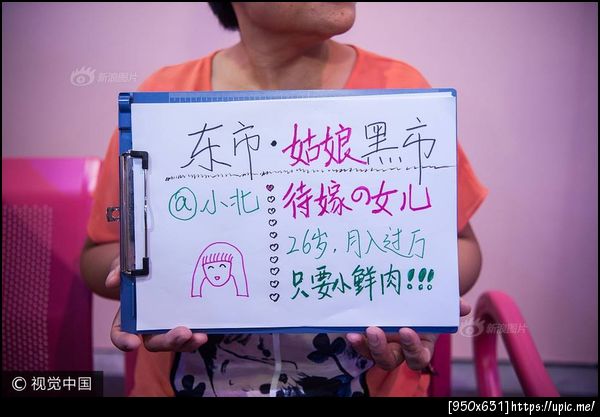 新浪图片
东市·姑娘黑市
@小北
待嫁の女儿
26岁,月入过万
只要小鲜肉!!!
新浪图片
© 视觉中国
[950x631]https://upic.me/